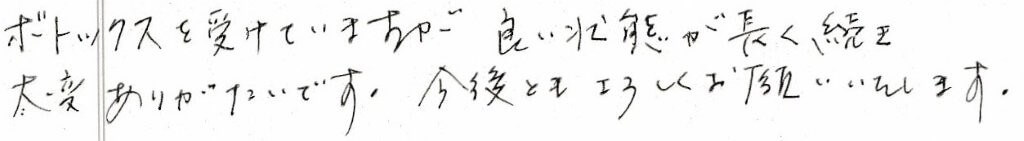 ボトックスを受けていますが 良い状態が長く続き
大変ありがたいです。今後ともよろしくお願いいたします。